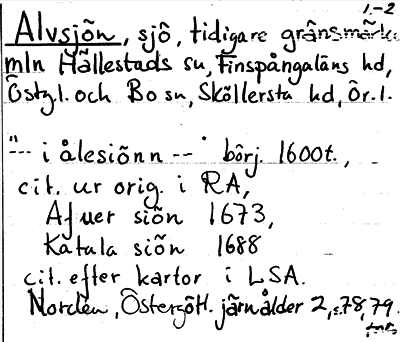 1.-2
Alvsjön, sjö, tidigare gränsmärke
mln Hällestads sn, Finspångaläns hd,
Östg.l. och Bo sn, Sköllersta hd, Ör.l.
"--- i ålesiönn ---" börj. 1600t.,
cit. ur orig. i RA,
Afuer siön 1673,
Kåtala siön 1688
cit. efter kartor i LSA.
Nordén, Östergötl. järnålder 2, s. 78, 79.